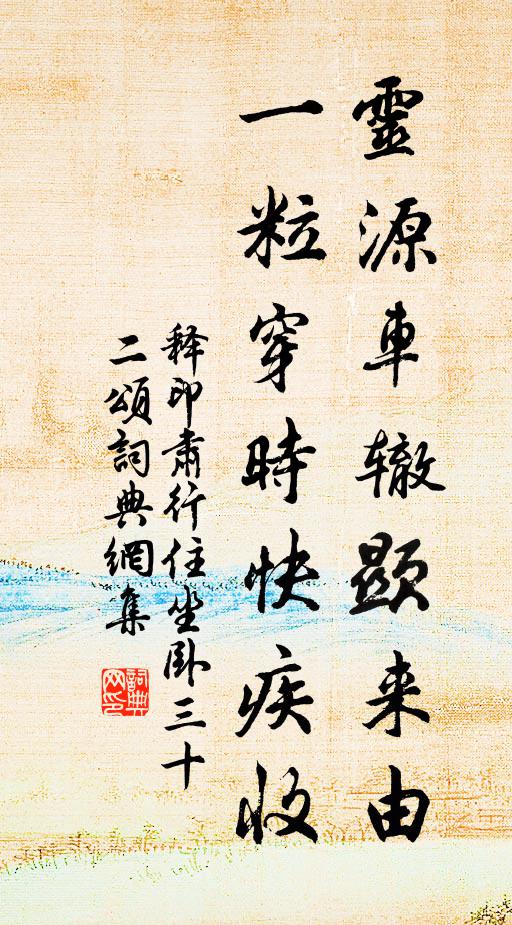 靈源車辙顕来由
一粒穿時快疾收
释印肃行住坐卧三十
二頌詞典網集
詞典
网印